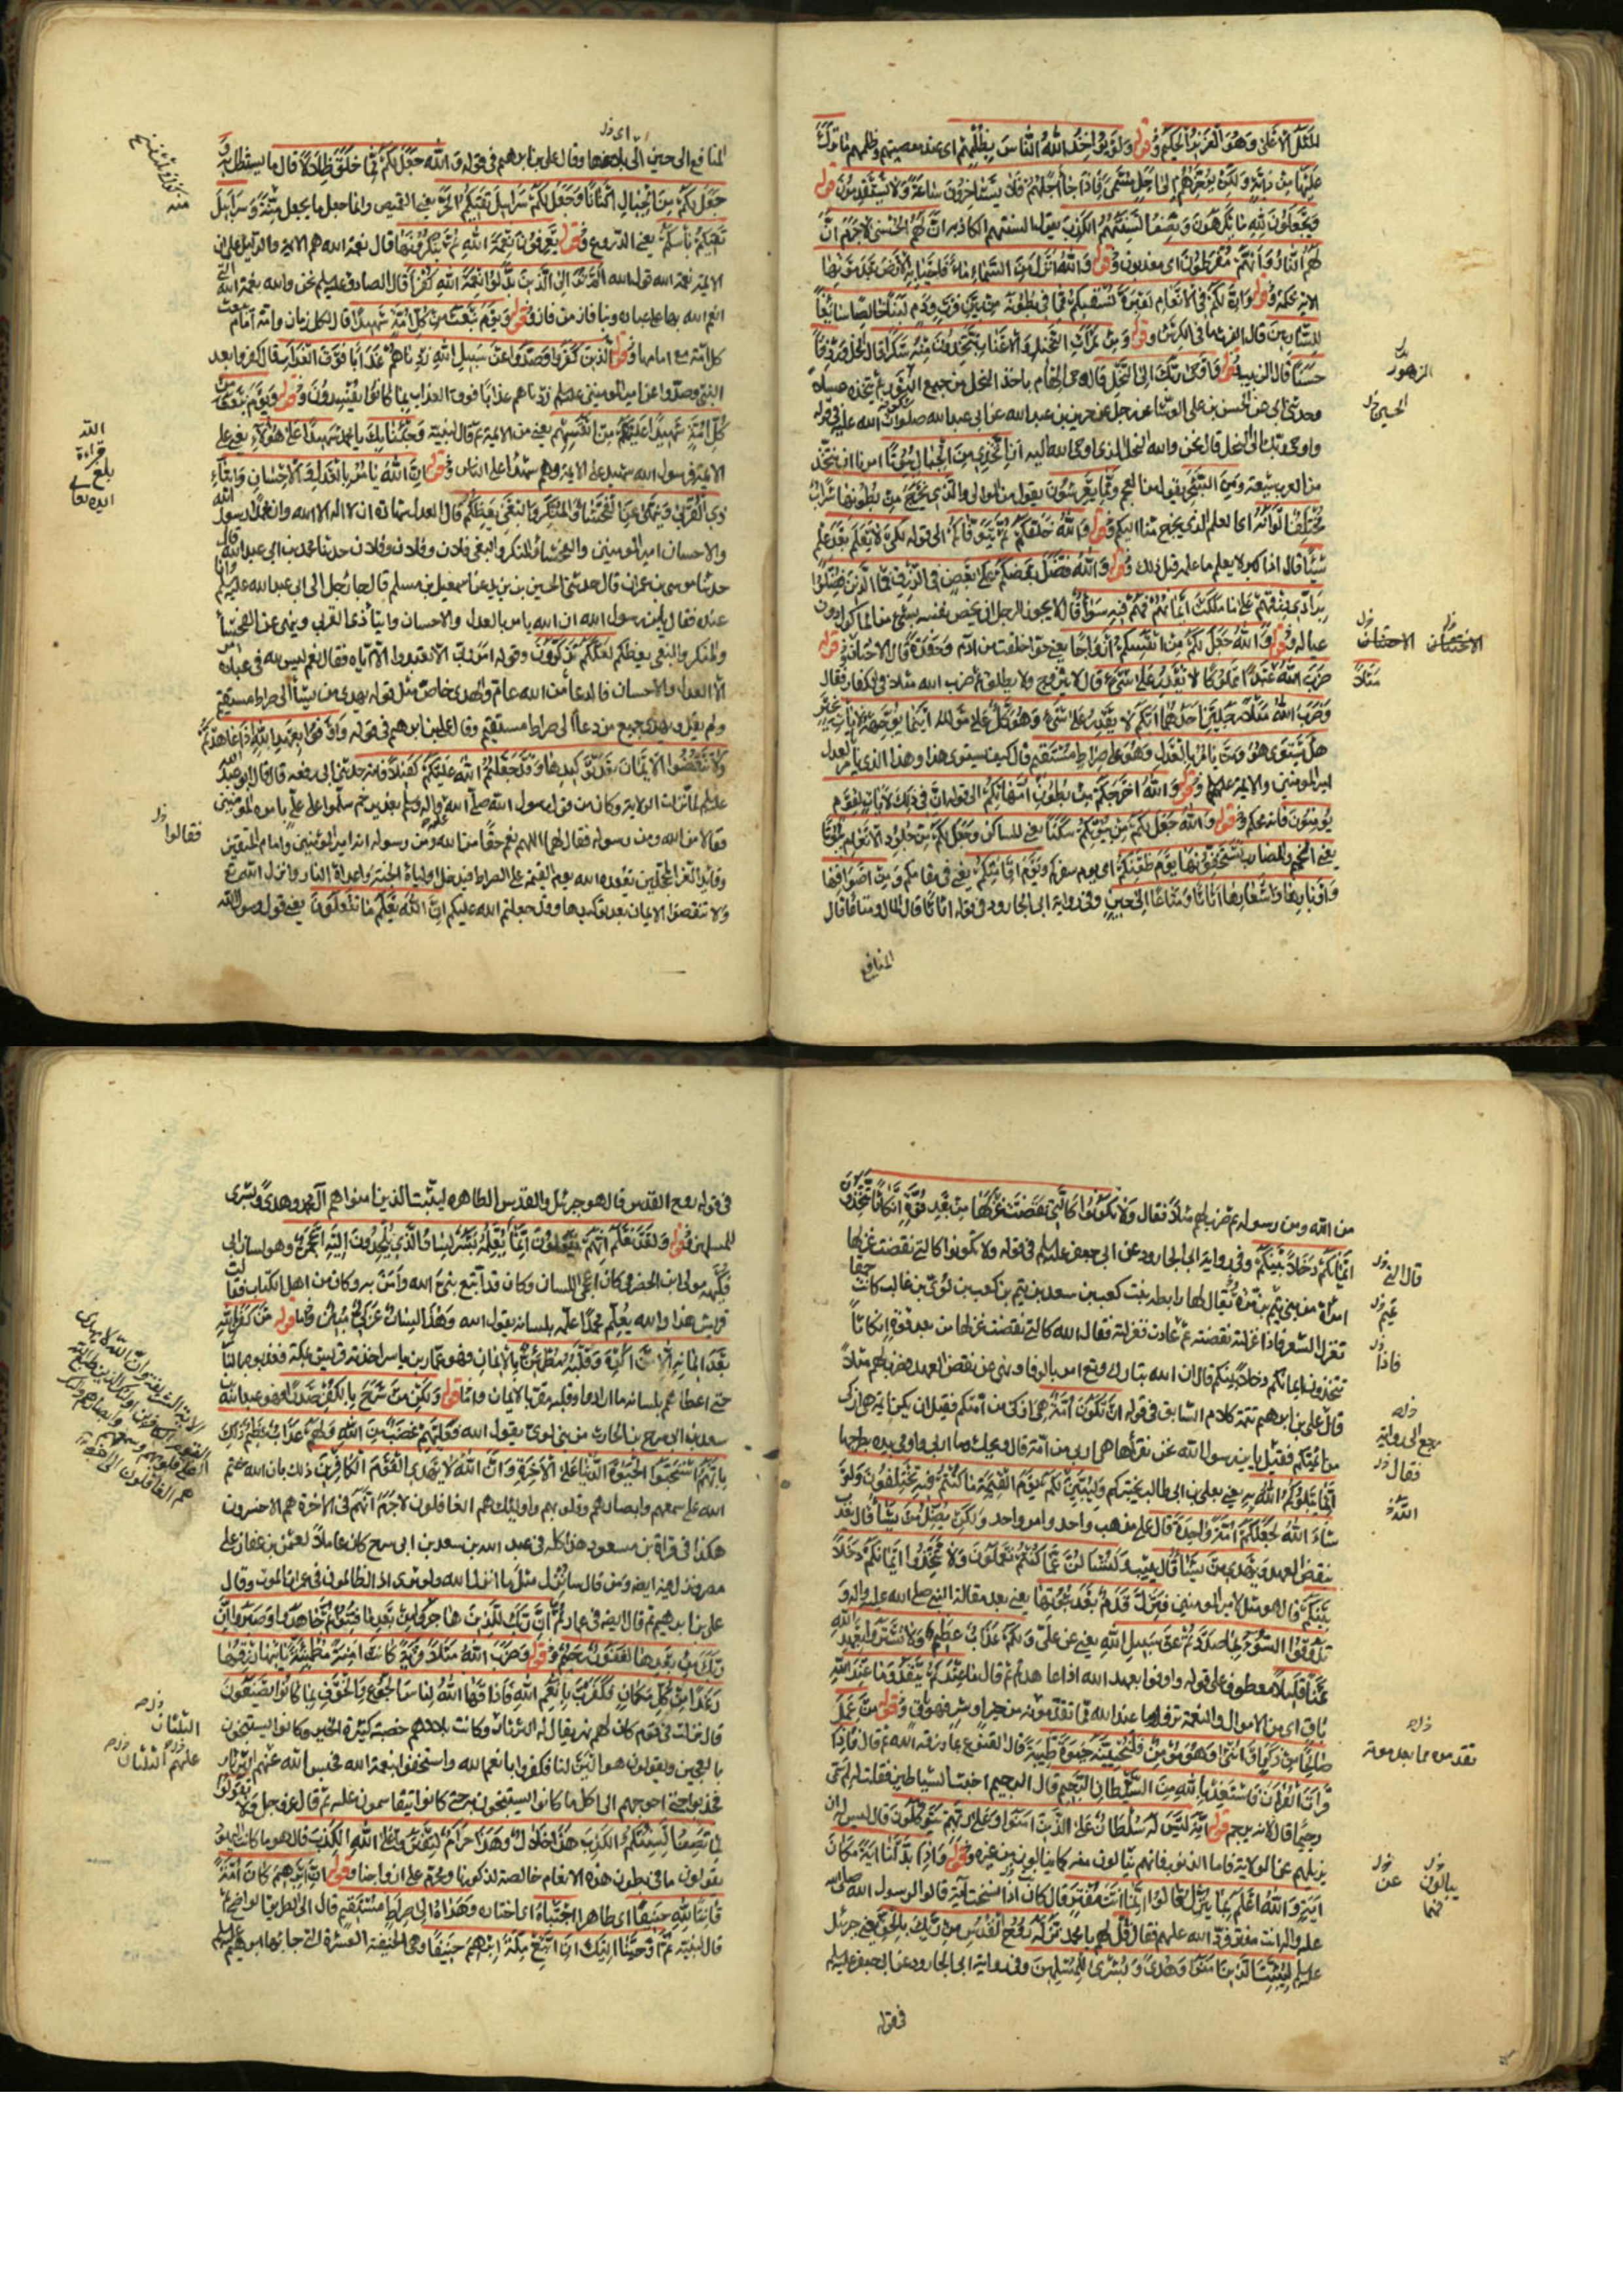 المثل الاعلى وهو العزيز الحكيم وقوله ولو يؤاخذ الله الناس بظلمهم اى عند معصيتهم وظلمهم ما ترك
عليها من دابة ولكن يؤخرهم الى اجل مسمى فاذا جاء اجلهم فلا يستاخرون ساعة ولا يستقدمون وقوله
ويجعلون لله ما يكرهون وتصف السنتهم الكذب يقول السنتهم الكاذبه ان لهم الحسنى لا جرم ان
لهم النار وانهم مفرطون اى معذبون وقوله والله انزل من السماء ماء فاحيا به الارض بعد موتها
الاية محكمة وقوله وان لكم فى الانعام لعبرة نسقيكم مما فى بطونه من بين فرث ودم لبنا خالصا سائغا
للشاربين قال الفرث ما فى الكرش وقوله ومن ثمرات النخيل والاعناب تتخذون منه سكرا قال الخل ورزقا
حسنا قال الزبيب وقوله واوحى ربك الى النحل قال وحى الهام ياخذ النحل من جميع النور ثم يتخذه عسلا
وحدثنى ابى عن الحسن بن على الوشا عن رجل عن حريز بن عبد الله عن ابى عبد الله صلوات الله عليه فى قوله
واوحى ربك الى النحل قال نحن والله النحل الذى اوحى الله اليه ان اتخذى من الجبال بيوتا امرنا ان نتخذ
من العرب شيعة ومن الشجر يقول من العجم ومما يعرشون يقول من الموالى والذى يخرج من بطونها شراب
مختلف الوانه اى العلم الذى يخرج منا اليكم وقوله والله خلقكم ثم يتوفاكم الى قوله لكى لا يعلم بعد علم
شيئا قال اذا كبر لا يعلم ما علمه قبل ذلك وقوله والله فضل بعضكم على بعض فى الرزق فما الذين فضلوا
برادى رزقهم على ما ملكت ايمانهم فهم فيه سواء قال لا يجوز للرجل ان يخص نفسه بشىء من الماكول دون
عياله وقوله والله جعل لكم من انفسكم ازواجا يعنى حوا خلقت من ادم وحفدة قال الاختان وقوله
ضرب الله عبدا مملوكا لا يقدر على شىء قال لا يتزوج ولا يطلق ثم ضرب الله مثلا فى الكفار فقال
وضرب الله مثلا رجلين احدهما ابكم لا يقدر على شىء وهو كل على مولاه اينما يوجهه لا يات بخير
هل يستوى هو ومن يامر بالعدل وهو على صراط مستقيم قال كيف يستوى هذا وهذا الذى يامر بالعدل
امير المؤمنين والائمة عليهم وقوله والله اخرجكم من بطون امهاتكم الى قوله ان فى ذلك لايات لقوم
يؤمنون فانه محكم وقوله والله جعل لكم من بيوتكم سكنا يعنى المساكن وجعل لكم من جلود الانعام بيوتا
يعنى الخيم والمضارب تستخفونها يوم ظعنكم اى يوم سفركم ويوم اقامتكم يعنى فى مقامكم ومن اصوافها
واوبارها واشعارها اثاثا ومتاعا الى حين وفى رواية ابى الجارود فى قوله اثاثا قال المال ومتاعا قال
المنافع
الزهور
الاختان
مثلا
اى
المنافع الى حين الى بلاغها وقال على بن ابرهيم فى قوله والله جعل لكم مما خلق ظلالا قال ما يستظل به
جعل لكم من الجبال اكنانا وجعل لكم سرابيل تقيكم الحر يعنى القميص وانما جعل ما يجعل منه وسرابيل
تقيكم باسكم يعنى الدروع وقوله يعرفون نعمة الله ثم ينكرونها قال نعمة الله هم الائمة والدليل على ان
الائمة نعمة الله قول الله الم تر الى الذين بدلوا نعمة الله كفرا قال الصادق عليه السلم نحن والله نعمة الله التى
انعم الله بها على عباده وبنا فاز من فاز وقوله ويوم نبعث من كل امة شهيدا قال لكل زمان وامة امام تبعث
كل امة مع امامها وقوله الذين كفروا وصدوا عن سبيل الله زدناهم عذابا فوق العذاب قال كفروا بعد
النبى وصدوا عن امير المؤمنين عليه السلم زدناهم عذابا فوق العذاب بما كانوا يفسدون وقوله ويوم نبعث من
كل امة شهيدا عليهم من انفسهم يعنى من الائمة ثم قال لنبيه وجئنا بك يا محمد شهيدا على هؤلاء يعنى على
الائمة فرسول الله شهيد على الائمة وهم شهداء على الناس وقوله ان الله يامر بالعدل والاحسان وايتاء
ذى القربى وينهى عن الفحشاء والمنكر والبغى يعظكم قال العدل شهادة ان لا اله الا الله وان محمدا رسول الله
والاحسان امير المؤمنين والفحشاء والمنكر والبغى فلان وفلان وفلان حدثنا محمد بن ابى عبد الله قال
حدثنا موسى بن عمران قال حدثنى الحسين بن يزيد عن اسمعيل بن مسلم قال جاء رجل الى ابى عبد الله عليه السلم وانا
عنده فقال يابن رسول الله ان الله يامر بالعدل والاحسان وايتاء ذى القربى وينهى عن الفحشاء
والمنكر والبغى يعظكم لعلكم تذكرون وقوله امر ربك الا تعبدوا الا اياه فقال نعم ليس لله فى عباده امر
الا العدل والاحسان فالدعاء من الله عام والهدى خاص مثل قوله يهدى من يشاء الى صراط مستقيم
ولم يقل ويهدى جميع من دعا الى صراط مستقيم وقال على بن ابرهيم فى قوله واوفوا بعهد الله اذا عاهدتم
ولا تنقضوا الايمان بعد توكيدها وقد جعلتم الله عليكم كفيلا فانه حدثنى ابى رفعه قال قال ابو عبد الله
عليه السلم لما نزلت الولاية وكان من قول رسول الله صلى الله عليه واله وسلم بغدير خم سلموا على على بامره المؤمنين
فقالا من الله ومن رسوله فقال لهما اللهم نعم حقا من الله ومن رسوله انه امير المؤمنين وامام المتقين
وقائد الغر المحجلين يقعده الله يوم القيمة على الصراط فيدخل اولياءه الجنة واعداءه النار وانزل الله عز
ولا تنقضوا الايمان بعد توكيدها وقد جعلتم الله عليكم كفيلا ان الله يعلم ما تفعلون يعنى قول رسول الله
فقالوا
من الله ومن رسوله ثم ضرب لهم مثلا فقال ولا تكونوا كالتى نقضت غزلها من بعد قوة انكاثا تتخذون
ايمانكم دخلا بينكم وفى رواية ابى الجارود عن ابى جعفر عليه السلم فى قوله ولا تكونوا كالتى نقضت غزلها
امراة من بنى تيم بن مرة يقال لها رابطه بنت كعب بن سعد بن تيم بن كعب بن لؤى بن غالب كانت حمقا
تغزل الشعر فاذا غزلته نقضته ثم عادت فغزلته فقال الله كالتى نقضت غزلها من بعد قوة انكاثا
تتخذون ايمانكم دخلا بينكم قال ان الله تبارك وتع امر بالوفا ونهى عن نقض العهد فضرب لهم مثلا
قال على بن ابرهيم تتمة كلام السابق فى قوله ان تكون امة هى اربى من امتكم فقيل ان تكون ائمة هى ازكى
من ائمتكم فقيل يابن رسول الله نحن نقرأها هى اربى من امة قال ويحك وما اربى واومى بيده بطرحها
انما يبلوكم الله به يعنى بعلى بن ابى طالب يختبركم وليبينن لكم يوم القيمة ما كنتم فيه تختلفون ولو
شاء الله لجعلكم امة واحدة قال على مذهب واحد وامر واحد ولكن يضل من يشاء قال يعذب
بنقض العهد ويهدى من يشاء قال يثيب ولتسئلن عما كنتم تعملون ولا تتخذوا ايمانكم دخلا
بينكم قال هو مثل لامير المؤمنين فتزل قدم بعد ثبوتها يعنى بعد مقالة النبى صلى الله عليه واله و
تذوقوا السوء بما صددتم عن سبيل الله يعنى عن على ولكم عذاب عظيم ولا تشتروا بعهد الله
ثمنا قليلا معطوف على قوله واوفوا بعهد الله اذا عاهدتم ثم قال ما عندكم ينفد وما عند الله
باق اى ما عندكم من الاموال والنعمة تزول وما عند الله مما تقدمونه من خير او شر فهو باق وقوله من عمل
صالحا من ذكر او انثى وهو مؤمن فلنحيينه حيوة طيبة قال القنوع بما رزقه الله ثم قال فاذا
قرات القران فاستعذ بالله من الشيطان الرجيم قال الرجيم اخبث الشياطين فقلت له لم سمى
رجيما قال لانه يرجم وقوله انه ليس له سلطان على الذين امنوا وعلى ربهم يتوكلون قال ليس له ان
يزيلهم عن الولاية فاما الذنوب فانهم ينالون منه كما ينالون من غيره وقوله واذا بدلنا اية مكان
اية والله اعلم بما ينزل قالوا انما انت مفتر قال كان اذا نسخت اية قالوا لرسول الله صلى الله
عليه واله انت مفتر فرد الله عليهم فقال قل لهم يا محمد نزله روح القدس من ربك بالحق يعنى جبرئل
عليه السلم ليثبت الذين امنوا وهدى وبشرى للمسلمين وفى رواية ابى الجارود عن ابى جعفر عليه السلم
فى قوله
تيم
فاذا
رجع الى رواية
فقال
ينالون
عن
فى قوله روح القدس قال هو جبرئل والقدس الطاهر ليثبت الذين امنوا هم آل محمد وهدى وبشرى
للمسلمين وقوله ولقد نعلم انهم يقولون انما يعلمه بشر لسان الذى يلحدون اليه اعجمى وهو لسان ابى
فكيهه مولى ابن الحضرمى كان اعجمى اللسان وكان قد اتبع نبى الله وآمن به وكان من اهل الكتاب فقالت
قريش هذا والله يعلم محمدا علمه بلسانه يقول الله وهذا لسان عربى مبين وقوله من كفر بالله
بعد ايمانه الا من اكره وقلبه مطمئن بالايمان وهو عمار بن ياسر اخذته قريش بمكة فعذبوه بالنار
حتى اعطاهم بلسانه ما ارادوا وقلبه مقر بالايمان واما قوله ولكن من شرح بالكفر صدرا فهو عبد الله بن
سعد بن ابى سرح بن الحارث من بنى لوى يقول الله فعليهم غضب من الله ولهم عذاب عظيم ذلك
بانهم استحبوا الحيوة الدنيا على الاخرة وان الله لا يهدى القوم الكافرين ذلك بان الله ختم
الله على سمعهم وابصارهم وقلوبهم واولئك هم الغافلون لا جرم انهم فى الاخرة هم الاخسرون
هكذا فى قراة بن مسعود هذا كله فى عبد الله بن سعد بن ابى سرح كان عاملا لعثمن بن عفان على
مصر ونزل فيه ايضا ومن قال سانزل مثل ما انزل الله ولو ترى اذ الظالمون فى غمرات الموت وقال
على بن ابرهيم ثم قال ايض فى عمار ثم ان ربك للذين هاجروا من بعد ما فتنوا ثم جاهدوا وصبروا ان
ربك من بعدها لغفور رحيم وقوله وضرب الله مثلا قرية كانت امنة مطمئنة ياتيها رزقها
رغدا من كل مكان فكفرت بانعم الله فاذاقها الله لباس الجوع والخوف بما كانوا يصنعون
قال نزلت فى قوم كان لهم نهر يقال له الثرثار وكانت بلادهم خصبة كثيرة الخير وكانوا يستنجون
بالعجين ويقولون هو الين لنا فكفروا بانعم الله واستخفوا بنعمة الله فحبس الله عنهم الثرثار
فجدبوا حتى احوجهم الى اكل ما كانوا يستنجون به حتى كانوا يتقاسمون عليه ثم قال عز وجل ولا تقولوا
لما تصف السنتكم الكذب هذا حلال وهذا حرام لتفتروا على الله الكذب قال هو ما كانت اليهود
يقولون ما فى بطون هذه الانعام خالصة لذكورنا ومحرم على ازواجنا وقوله ان ابرهيم كان امة
قانتا لله حنيفا اى طاهرا اجتباه اى اختاره وهداه الى صراط مستقيم قال الى الطريق الواضح ثم
قال لنبيه ثم اوحينا اليك ان اتبع ملة ابرهيم حنيفا وهى الحنيفة العشرة التى جاء بها ابرهيم عليه السلم
الثلثان
عليهم الثلثان